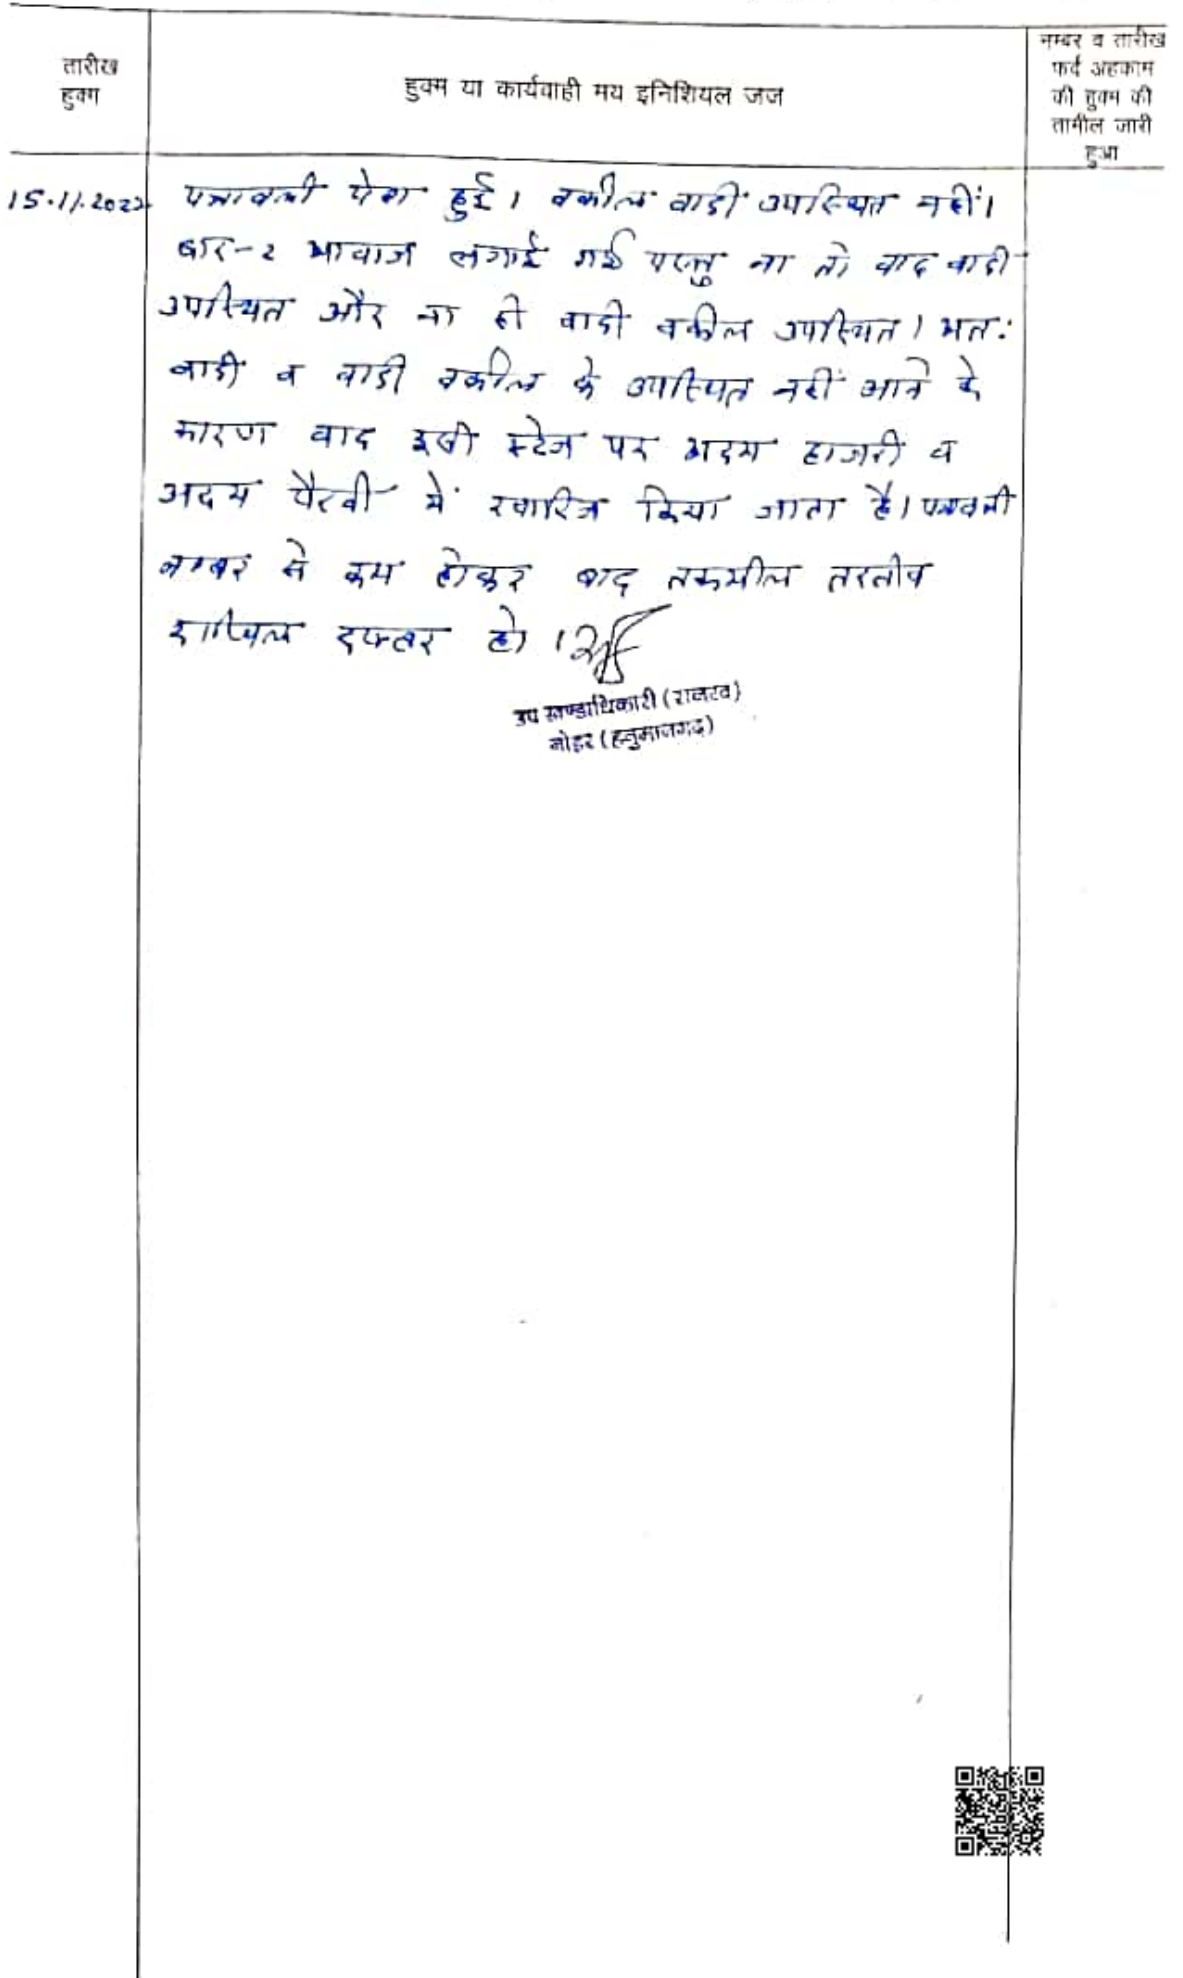 तारीख
हुक्म
हुक्म या कार्यवाही मय इनिशियल जज
नम्बर व तारीख
फर्द अहकाम
की हुक्म की
तामील जारी
हुआ
15.11.2022 पत्रावली पेश हुई। वकील वादी उपस्थित नहीं।
बार-2 आवाज लगाई गई परन्तु ना तो वाद वादी
उपस्थित और ना ही वादी वकील उपस्थित। अतः
वादी व वादी वकील के उपस्थित नहीं आने के
कारण वाद इसी स्टेज पर अदम हाजरी व
अदम पैरवी में खारिज किया जाता है। पत्रावली
नम्बर से कम होकर बाद तकमील तरतीब
शामिल दफ्तर हो।
उप खण्डाधिकारी (राजस्व)
नोहर (हनुमानगढ़)